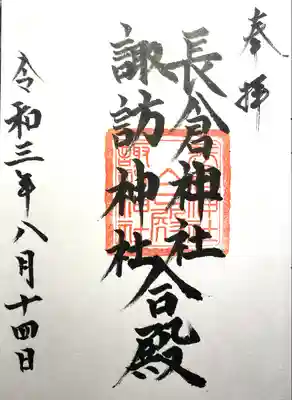 奉拝
長倉神社
諏訪神社
合殿
令和三年八月十四日